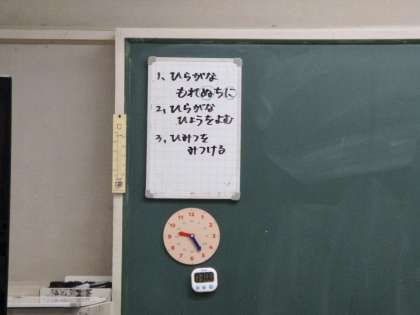 1, ひらがな
もれぬちに
2, ひらがな
ひょうをよむ
3, ひみつを
みつける
12
1
2
3
4
5
6
7
8
9
10
11